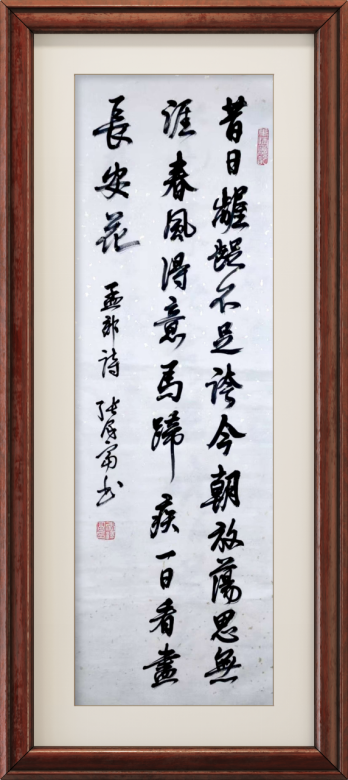 昔日齷齪不足誇今朝放蕩思無
涯春風得意馬蹄疾一日看盡
長安花
孟郊詩 張 書